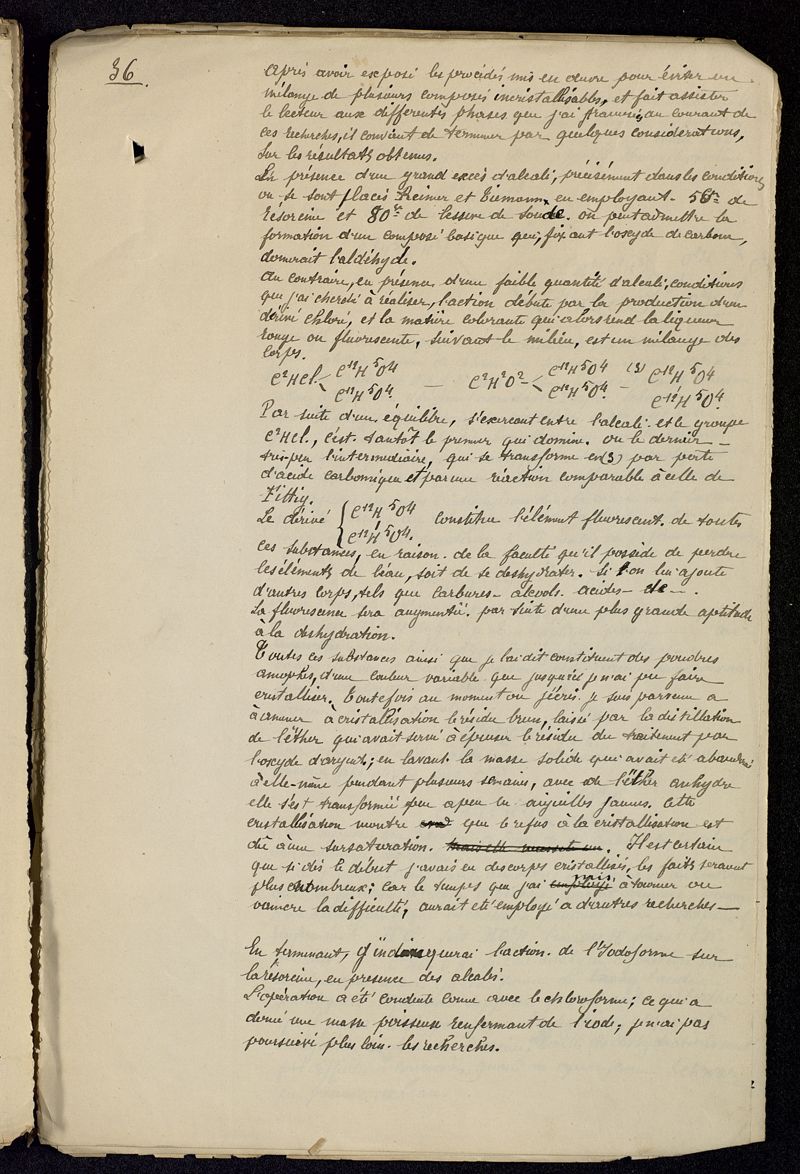 36.
Après avoir exposé les procédés mis en œuvre pour éviter un
mélange de plusieurs composés incristallisables, et fait assister
le lecteur aux différentes phases que j'ai au courant de
ces recherches, il convient de terminer par quelques considérations,
sur les résultats obtenus.
En présence d'un grand excès d'alcali, précisément dans les conditions
ou se sont placés Reimer et Tiemann, en employant de
résorcine et 80gr de lessive de soude. on peut admettre la
formation d'un composé basique qui, fixant l'oxyde de carbone,
donnerait l'aldéhyde.
Au contraire, en présence d'une faible quantité d'alcali, conditions
que j'ai cherché à réaliser, l'action débute par la production d'un
dérivé chloré, et la matière colorante qui alors rend la liqueur
rouge ou fluorescente, suivant le milieu, est un mélange des
corps.
C²HCl < C¹²H⁵O4 — C²H²O² < C¹²H⁵O4 — (3) C¹²H⁵O4
C¹²H⁵O4. C¹²H⁵O4. C¹²H⁵O4.
Par suite d'un équilibre, s'exercant entre l'alcali et le groupe
C²HCl., c'est tantôt le premier qui domine. ou le dernier —
très-peu l'intermédiaire, qui se transforme en (3) par perte
d'acide carbonique et par une réaction comparable à celle de
Fittig.
Le dérivé { C¹²H⁵O4 constitue l'élément fluorescent. de toutes
C¹²H⁵O4.
ces substances, en raison de la faculté qu'il possède de perdre
les éléments de l'eau, soit de se deshydrater. Si l'on lui ajoute
d'autres corps, tels que carbures — alcools. acides — etc —.
La fluorescence sera augmentée par suite d'une plus grande aptitude
à la deshydration.
Toutes ces substances ainsi que je l'ai dit constituent des poudres
amophes, d'une couleur variable que jusqu'ici je n'ai pu faire
cristalliser. Toutefois au moment ou j'écris je suis parvenu a
à amener à cristallisation le résidu brun, laissé par la distillation
de l'éther qui avait servi à épuiser le résidu du traitement par
l'oxyde d'argent; en lavant la masse solide qui avait été abandonné
à elle-même pendant plusieurs semaines, avec de l'éther anhydre
elle s'est transformée peu a peu en aiguilles jaunes. Cette
cristallisation montre que le refus à la cristallisation est
dû à une sursaturation. Il est certain
que si dès le début j'avais eu des corps cristallisés, les faits seraient
plus nombreux; car le temps que j'ai employé mis à tourner ou
vaincre la difficulté, aurait été employé a d'autres recherches —
En terminant, j'indiquerai l'action de l'Iodoforme sur
la résorcine, en présence des alcalis.
L'opération a été conduite comme avec le chloroforme; ce qui a
donné une masse poisseuse renfermant de l'iode; je n'ai pas
poursuivi plus loin les recherches.